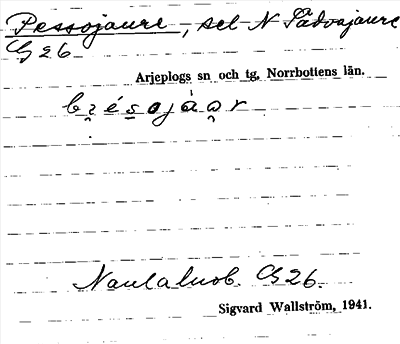 Pessojaure, sel N Tådvajaure
G 26
Arjeplogs sn och tg, Norrbottens län.
Naulaluob. G 26.
Sigvard Wallström, 1941.